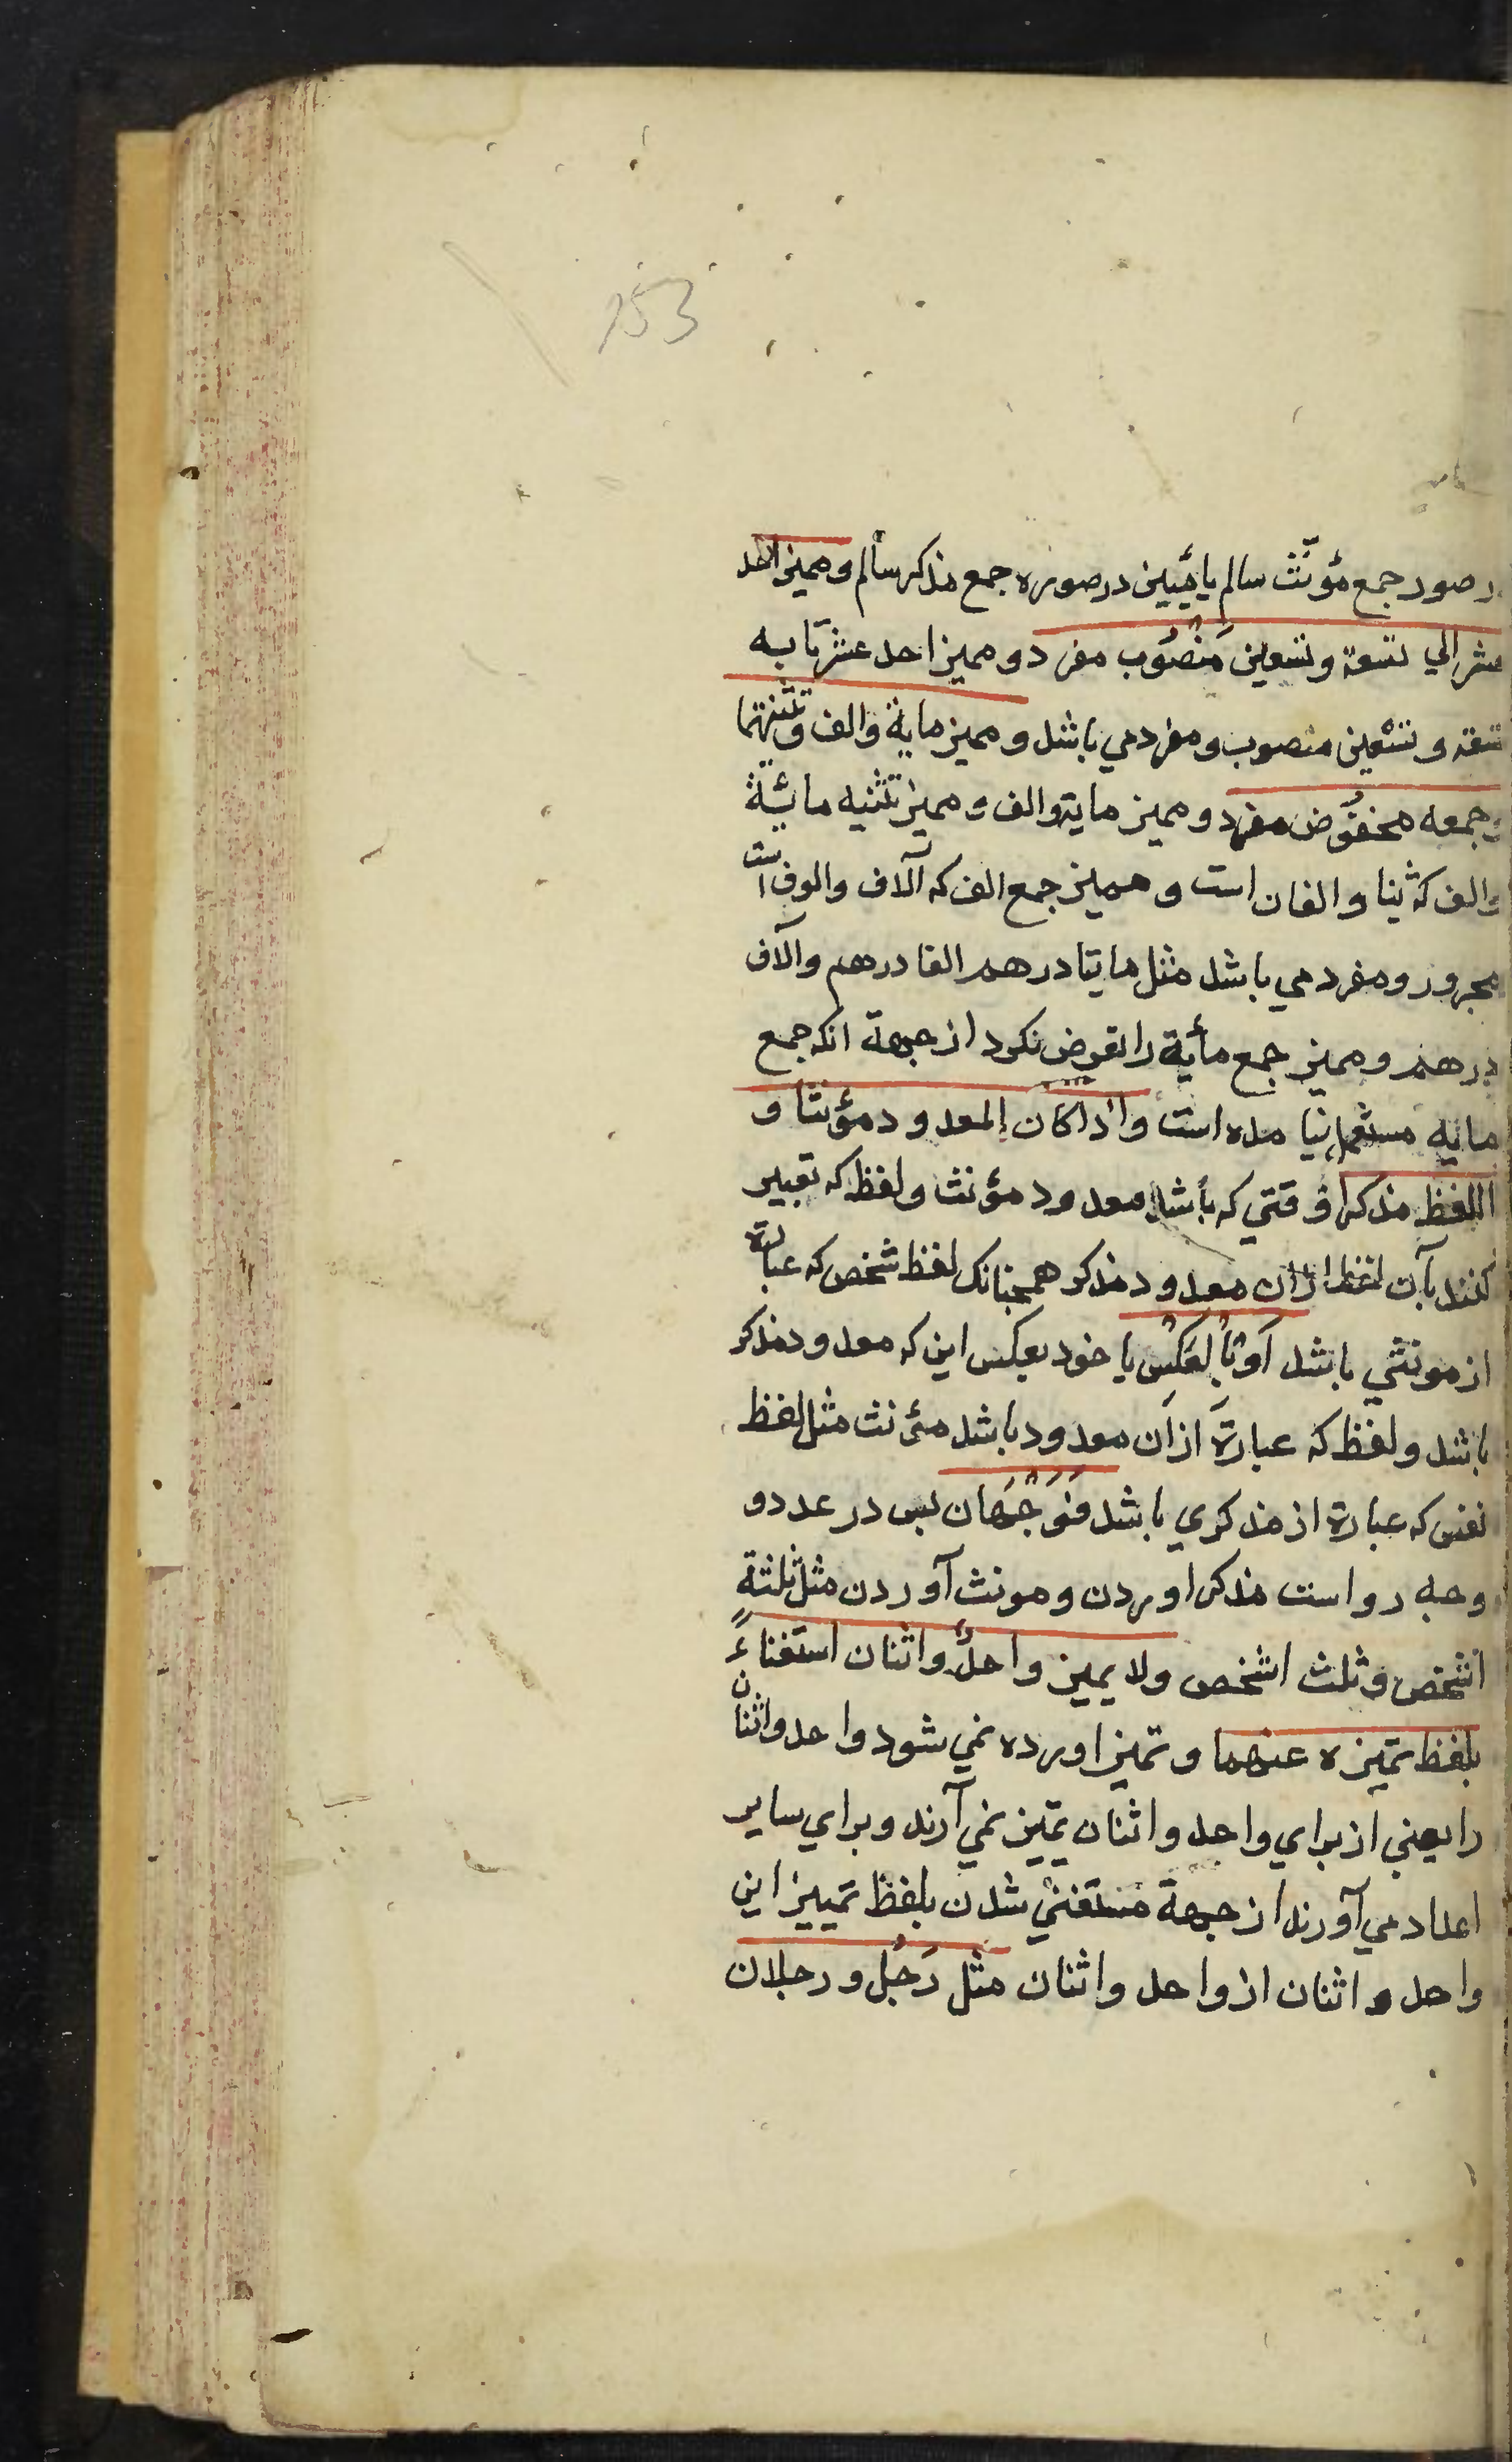 153
در صور جمع مؤنّث سالم یا مئیین در صوره جمع مذکر سالم و ممیز احد
عشر الي تسعة وتسعین مَنْصُوب مفرد و ممیز احد عشر تا به
تسعه و تسعین منصوب و مفرد مي باشد و ممیز مایة والف وتثنیتهما
وجمعه مخفُوض مفرد و ممیز مایة والف و ممیز تثنیه مائة
والف که مئتا و الفان است و ممیز جمع الف که آلاف والوف است
مجرور و مفرد مي باشد مثل مایتا درهم الفا درهم وآلاف
درهم و ممیز جمع مأیة را تعرض نکرد از جهة انکه جمع
مایه مستعمل نیامده است واذا کان المعدود مؤنثا و
اللفظ مذکرا وقتي که باشد معدود مؤنث و لفظ که تعبیر
کنند بآن لفظ از ان معدود مذکر همچنانک لفظ شخص که عبارة
از مونثي باشد اَوْ بِالْعَکْسِ یا خود بعکس این که معدود مذکر
باشد و لفظ که عبارة از ان معدود باشد مئونث مثل لفظ
نفس که عبارة از مذکري باشد فَوَجْهَان پس در عدد دو
وجه رواست مذکر اوردن و مونث آوردن مثل ثلثة
اشخص و ثلث اشخص ولا یمیز واحدٌ واثنان استغناءً
بلفظ تمیزه عنهما و تمیز اورده نمي شود واحد واثنان
را یعني از براي واحد واثنان تمیز نمي آرند و براي سایر
اعداد مي آورند از جهة مستغني شدن بلفظ تمییز این
واحد و اثنان از واحد واثنان مثل رَجُل و رجلان